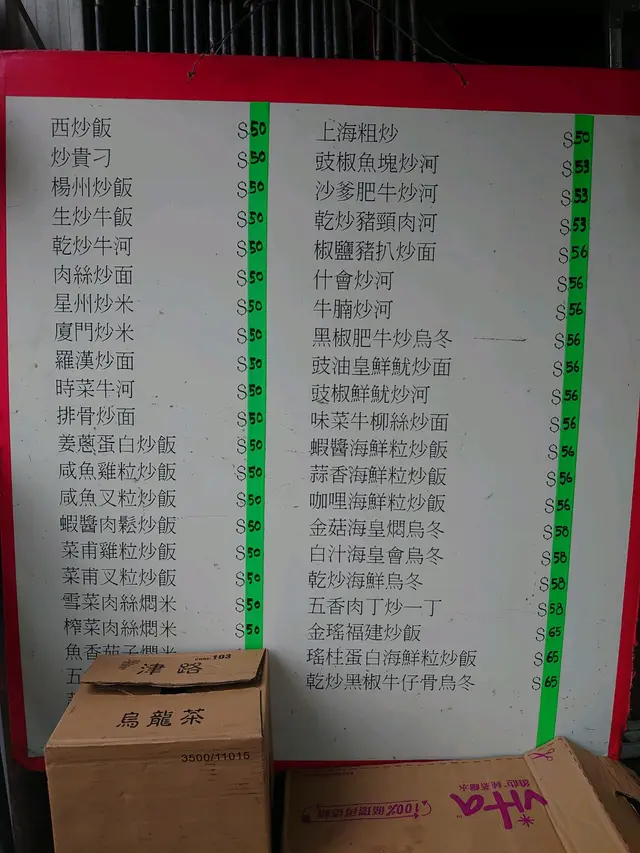 西炒飯 $50
炒貴刁 $50
楊州炒飯 $50
生炒牛飯 $50
乾炒牛河 $50
肉絲炒面 $50
星州炒米 $50
廈門炒米 $50
羅漢炒面 $50
時菜牛河 $50
排骨炒面 $50
姜蔥蛋白炒飯 $50
咸魚雞粒炒飯 $50
咸魚叉粒炒飯 $50
蝦醬肉鬆炒飯 $50
菜甫雞粒炒飯 $50
菜甫叉粒炒飯 $50
雪菜肉絲燜米 $50
榨菜肉絲燜米 $50
魚香茄子燜米
五
上海粗炒 $50
豉椒魚塊炒河 $53
沙爹肥牛炒河 $53
乾炒豬頸肉河 $53
椒鹽豬扒炒面 $56
什會炒河 $56
牛腩炒河 $56
黑椒肥牛炒烏冬 $56
豉油皇鮮魷炒面 $56
豉椒鮮魷炒河 $56
味菜牛柳絲炒面 $56
蝦醬海鮮粒炒飯 $56
蒜香海鮮粒炒飯 $56
咖哩海鮮粒炒飯 $56
金菇海皇燜烏冬 $58
白汁海皇會烏冬 $58
乾炒海鮮烏冬 $58
五香肉丁炒一丁 $58
金瑤福建炒飯 $65
瑤柱蛋白海鮮粒炒飯 $65
乾炒黑椒牛仔骨烏冬 $65
津路
103
烏龍茶
3500/11015
vita
純蒸餾水
100%